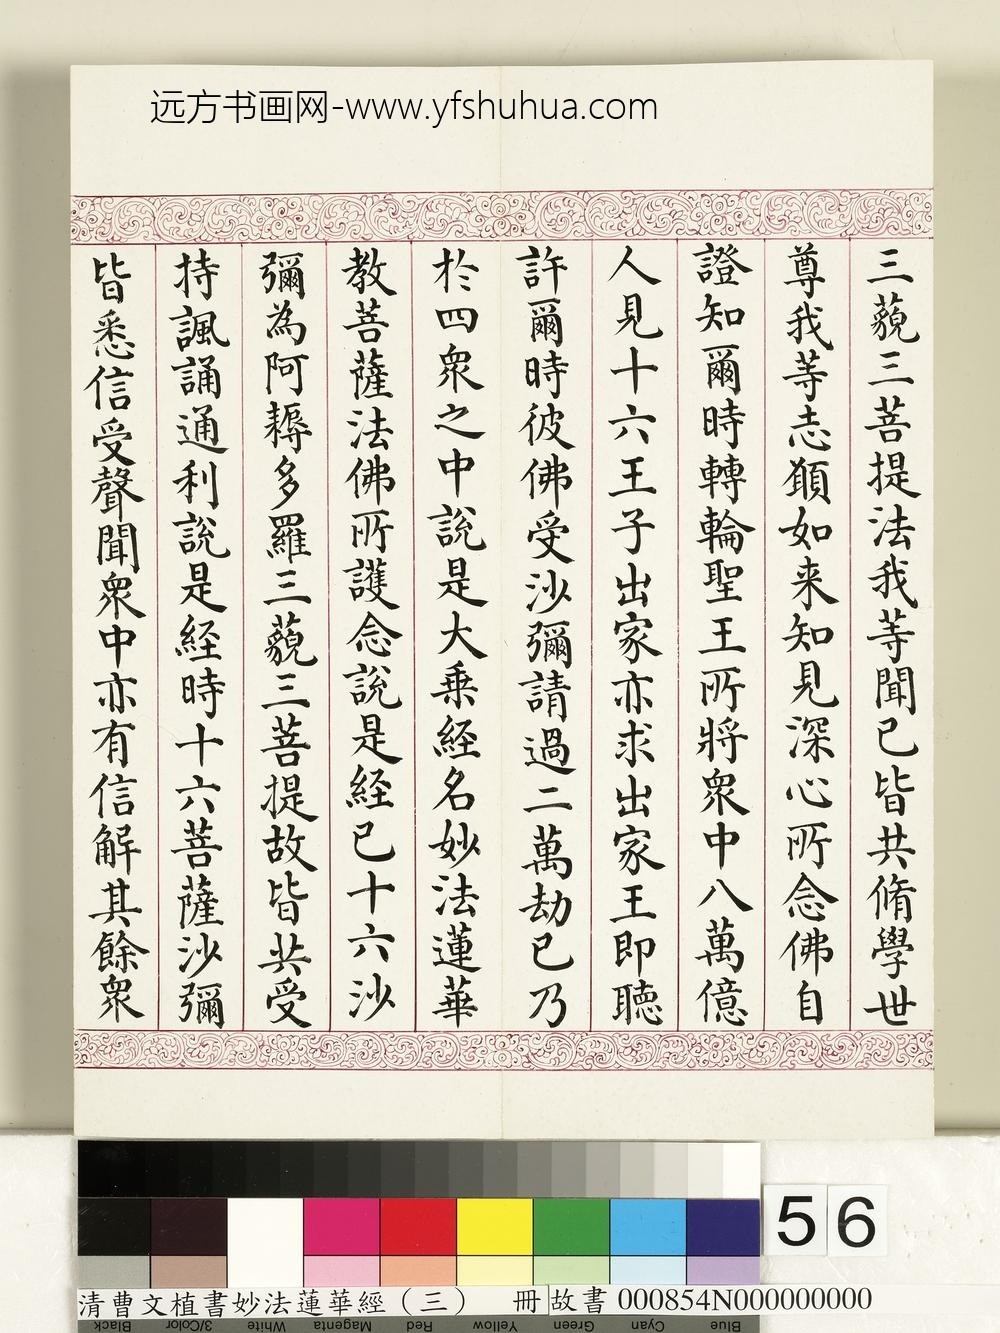 远方书画网-www.yfshuhua.com
三藐三菩提法我等聞已皆共脩學世
尊我等志願如来知見深心所念佛自
證知爾時轉輪聖王所將衆中八萬億
人見十六王子出家亦求出家王即聽
許爾時彼佛受沙彌請過二萬劫已乃
於四衆之中說是大乗経名妙法蓮華
教菩薩法佛所護念說是経已十六沙
彌為阿耨多羅三藐三菩提故皆共受
持諷誦通利說是経時十六菩薩沙彌
皆悉信受聲聞衆中亦有信解其餘衆
56
清曹文植書妙法蓮華經（三） 冊 故書 000854N000000000
Black 3/Color White Magenta Red Yellow Green Cyan Blue